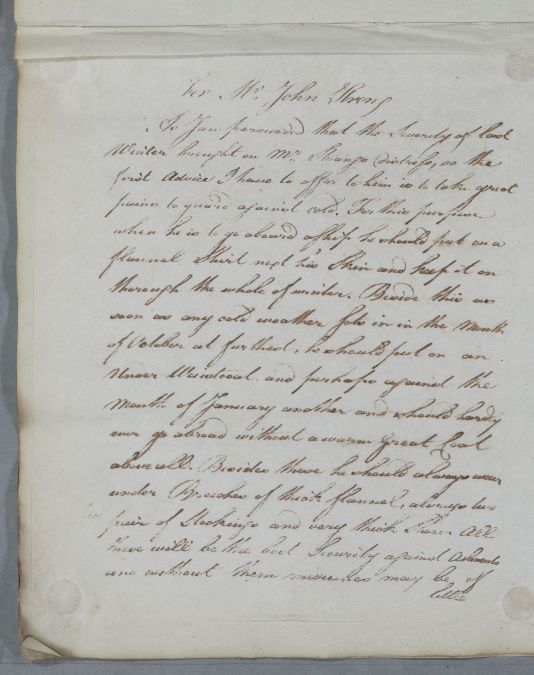 For Mr. John Strong
As I am perswaded that the Severity of last
Winter brought on Mr. Strongs Distress, so the
first Advice I have to offer to him is to take great
pains to guard against cold. For this purpose
when he is to go aboard of ship he should put on a
flannel Shirt next his Skin and keep it on
thorough the whole of winter. Beside this as
soon as any cold weather sets in in the Month
of October at furthest, he should put on an
Under Waistcoat, and perhaps against the
Month of January another and should hardly
ever go abroad without a warm Great Coat
above all. Besides these he should always wear
under Breeches of thick flannel, always two
pair of Stockings and very thick Shoes. All
these will be the best Security against Ailments
and without them medicines may be of
little